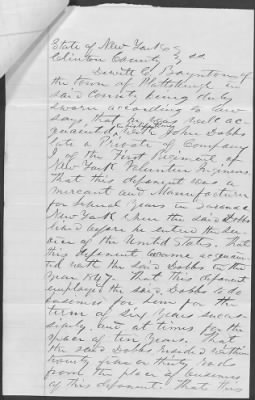 State of New York
Clinton County } ss.
Dewitt C. Boynton of
the town of Plattsburgh in
said County being duly
sworn according to law
says that he was well ac-
quainted with John Dobbs
late a Private of Company
I of the First Regiment of
New York Volunteer Engineers.
That this deponent was a
mercant and Manufacturer
for several Years in
New York when the said Dobbs
lived before he entered the ser-
vice of the United States. That
this deponent became acquain-
ted with the said Dobbs in the
Year 1847. That this deponent
employed the said Dobbs to do
business for him for the
term of Six Years succes-
sively, and at times for the
space of ten Years. That
the said Dobbs resided within
twenty five or thirty rods
from the place of business
of this deponent. That this